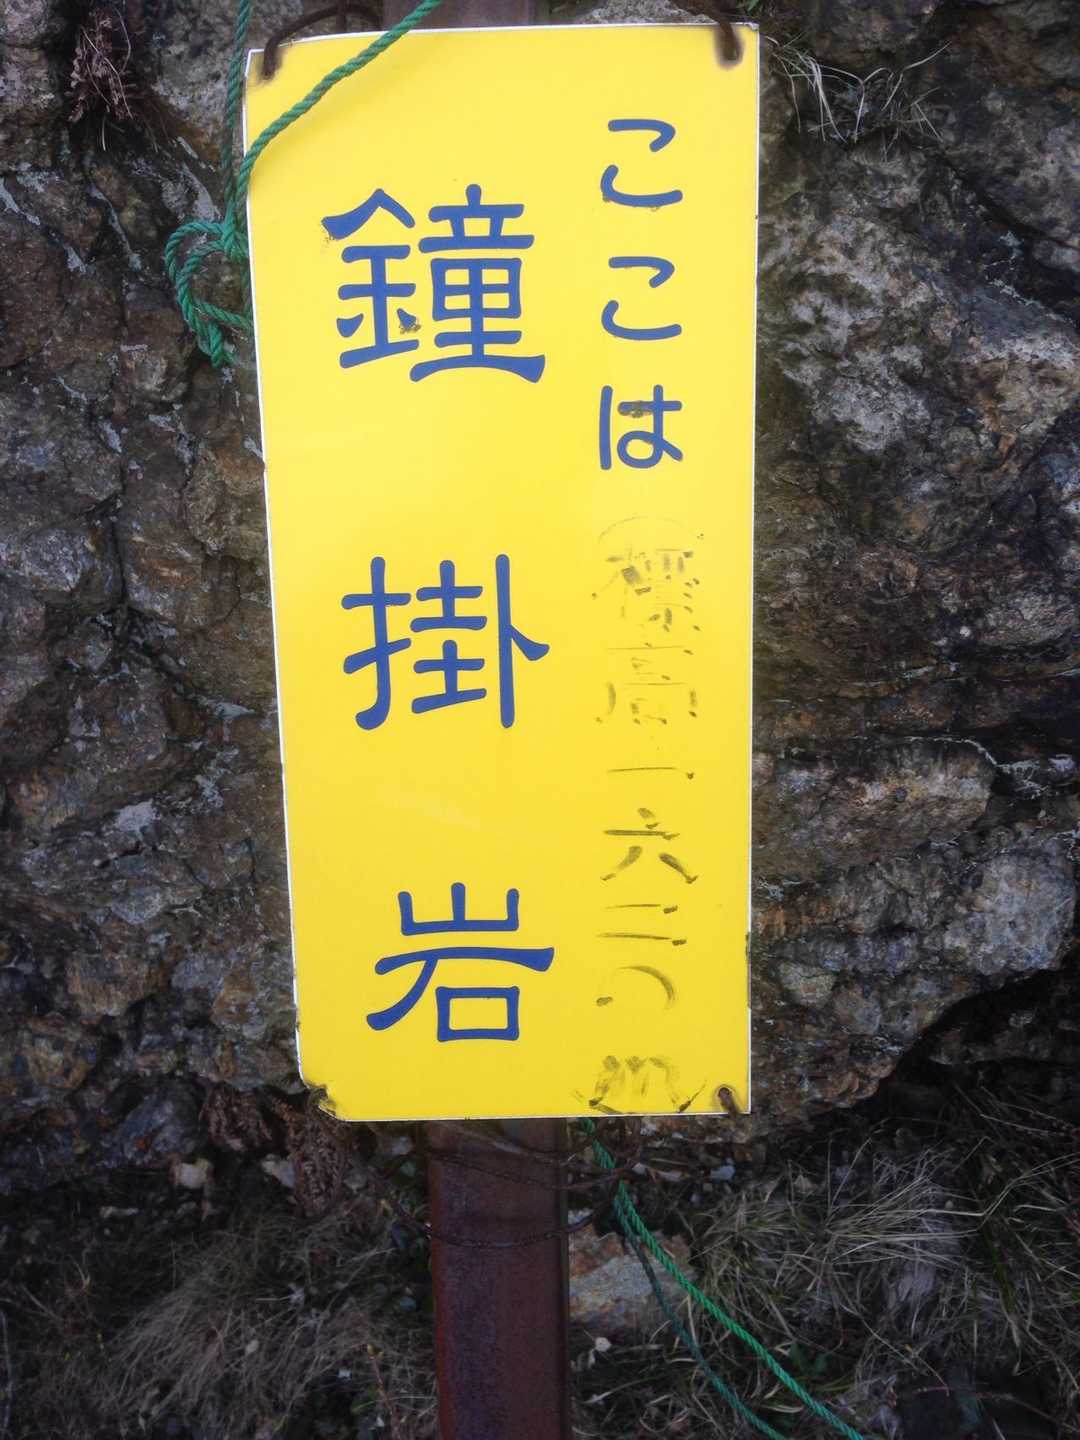 ここは(標高一六二〇m
鐘掛岩